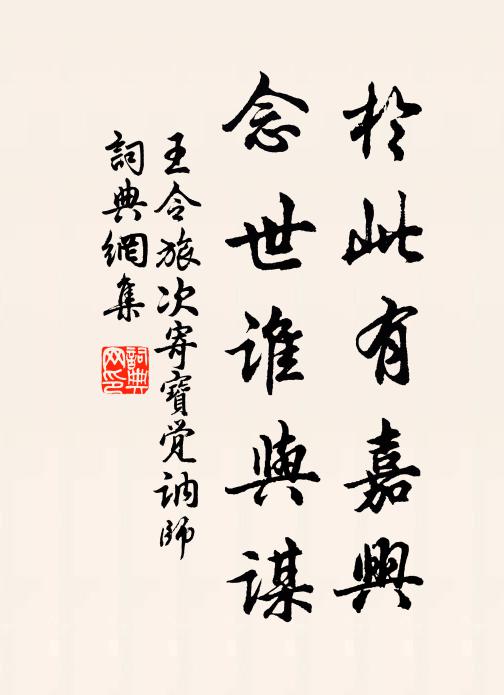 於此有嘉興
念世誰與謀
王令旅次寄寶覺訥師
詞典網集
詞典
网印